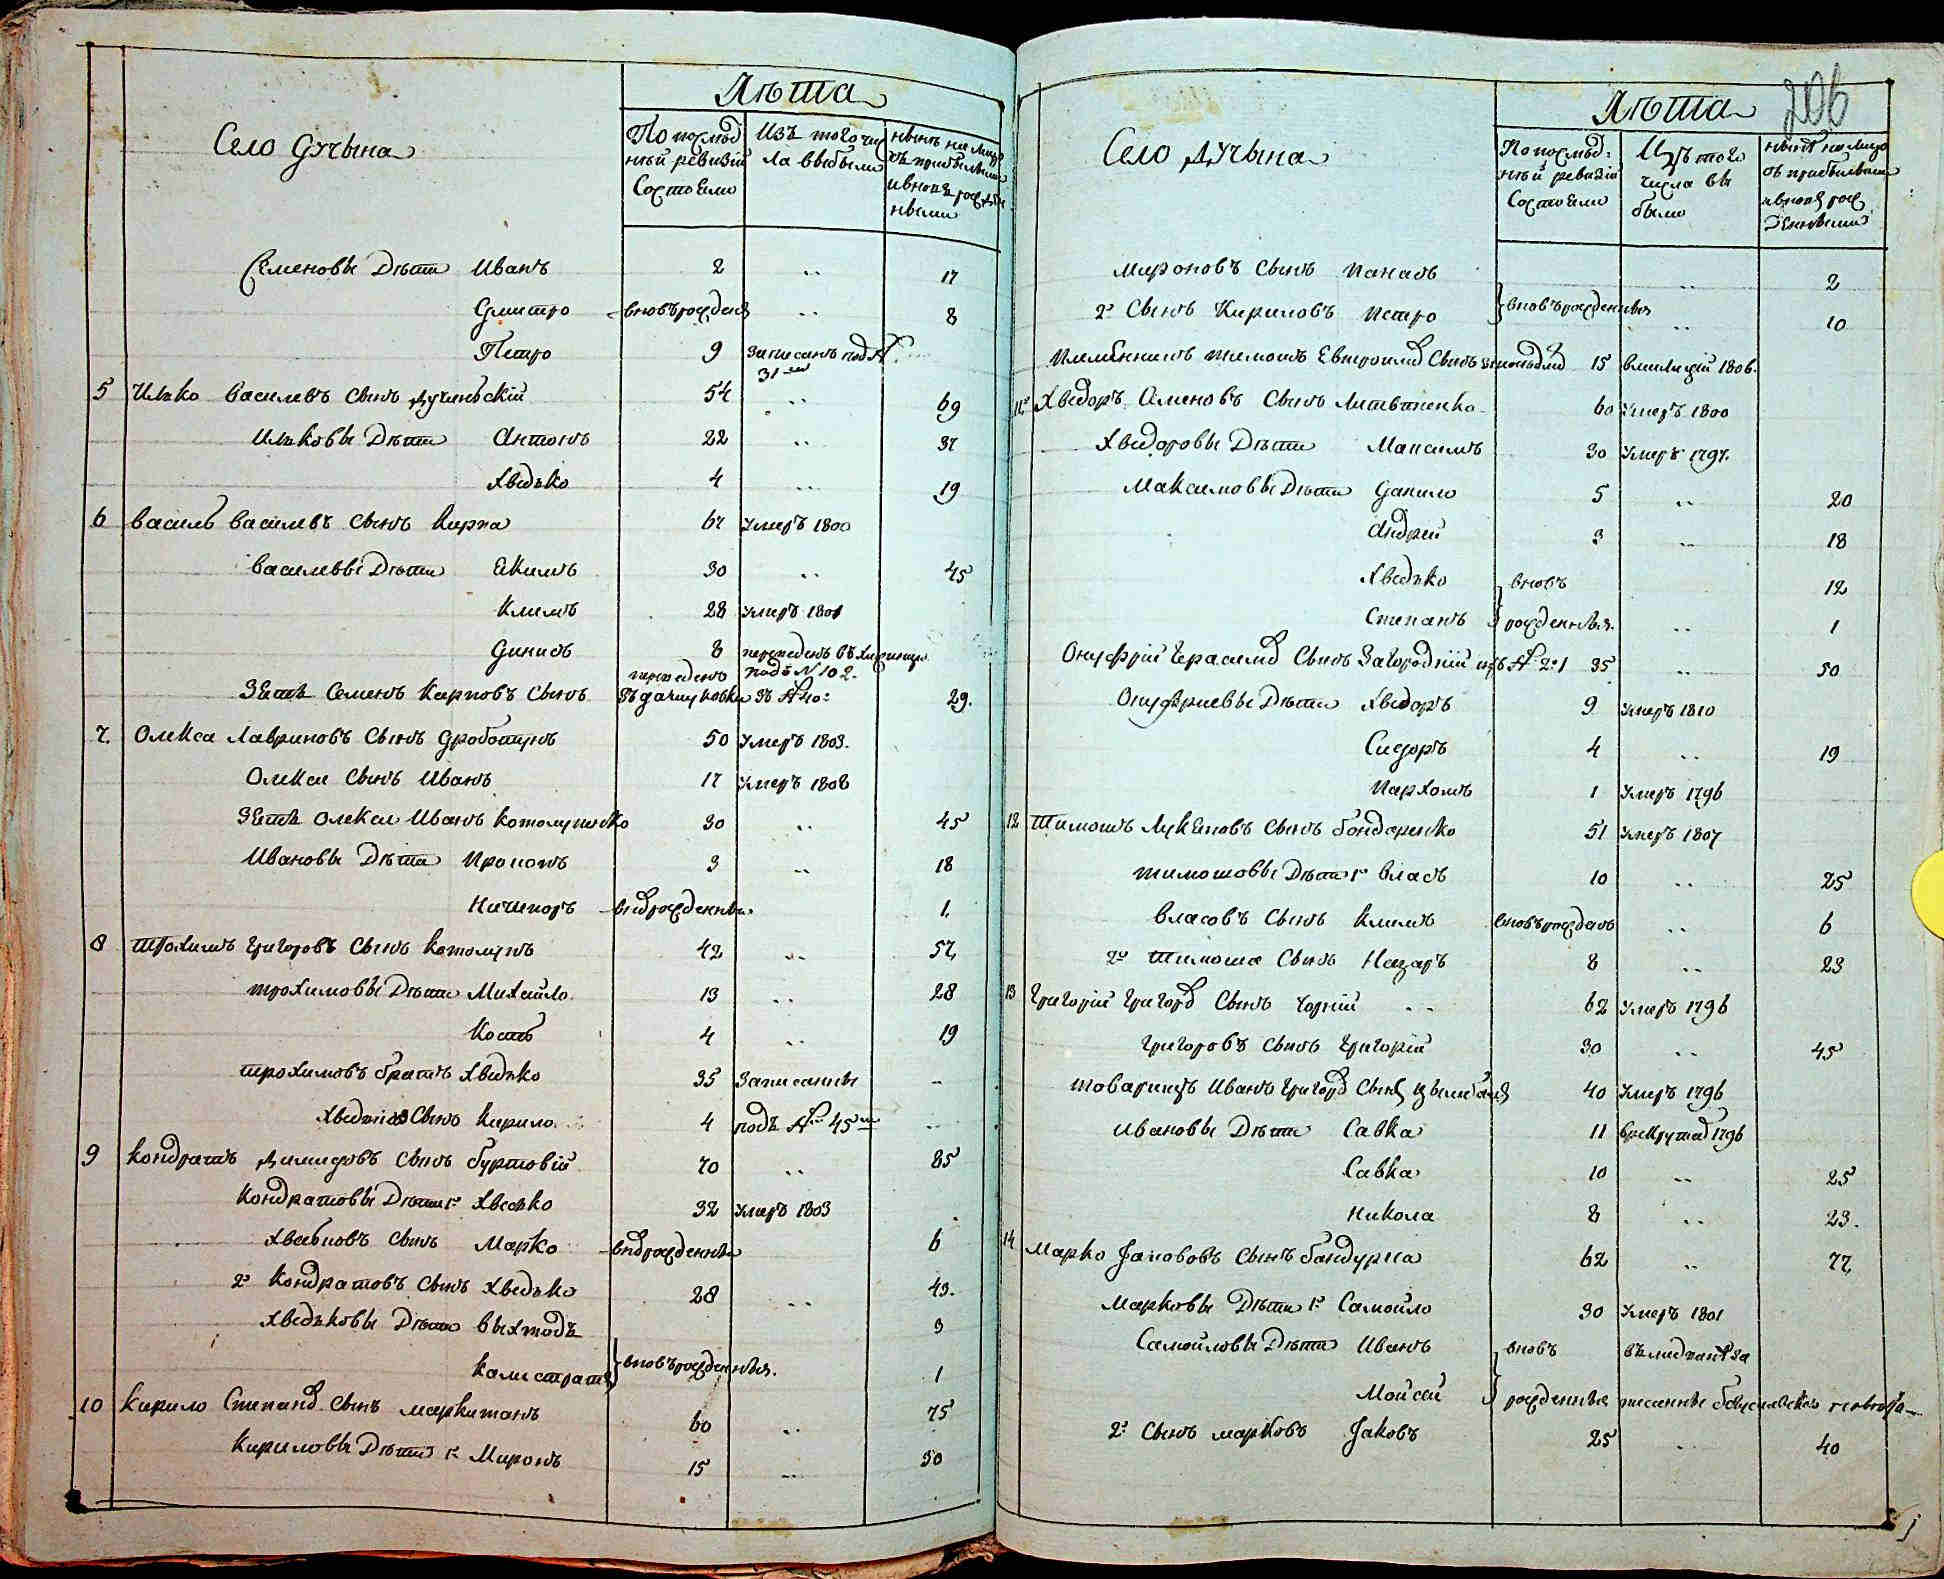 Село Дучына
Лѣта
По послѣд
ней ревизіи
Состояло
Изъ того чис
ла выбыло
нынѣ на лицо
съ прибылыми
и вновь рожден
ными
Семеновы Дѣти Иванъ 2 .. 17
Дмитро вновърожден .. 8
Петро 9 Записанъ под №
31м
5 Илько Василевъ Сынъ Дучинскій 54 .. 69
Ильковы Дѣти Антонъ 22 .. 37
Хведько 4 .. 19
6 Василь Василевъ Сынъ Кирпа 67 Умеръ 1800
Василевы Дѣти Екимъ 30 .. 45
Климъ 28 Умеръ 1801
Динисъ 8 переведенъ въ
подъ N 102.
Зять Семенъ Карповъ Сынъ переведено 29.
7. Олекса Лавриновъ Сынъ Дроботунъ 50 Умеръ 1803.
Олекси Сынъ Иванъ 17 Умеръ 1808
Зять Олекси Иванъ Котолупенко 30 .. 45
Ивановы Дѣти Прокопъ 3 .. 18
Ничипоръ внов рожденны. 1.
8 Трохимъ Григоровъ Сынъ Котолупъ 42 .. 57
Трохимовы Дѣти Михайло. 13 .. 28
Кость 4 .. 19
Трохимовъ братъ Хведько 35 Записанны –
Хведьковъ Сынъ Кирило 4 подъ № 45м ..
9 Кондратъ Демидовъ Сынъ Буртовій 70 .. 85
Кондратовы Дѣти 1й Хведько 32 Умеръ 1803
Хведьковъ Сынъ Марко внов рожденны 6
2й Кондратовъ Сынъ Хведько 28 .. 43.
Хведьковы Дѣти 3
Калистратъ вновърожденныя. 1
10 Кирило Степанов Сынъ Маркитанъ 60 .. 75
Кириловы Дѣти 1й Миронъ 15 .. 30
206
Село Дучына
Лѣта
По послѣд:
ней ревизіи
Состояло
Изъ того
числа вы
было
нынѣ на лицо
съ прибылыми
и вновь рож
денными
Мироновъ Сынъ Панасъ .. 2
2й Сынъ Кириловъ Петро вновърожденныя .. 10
Племѣнникъ 15 вмилиціи 1806.
11 Хведоръ Семеновъ Сынъ Литвиненко 60 Умеръ 1800
Хведоровы Дѣти Максимъ 30 Умеръ 1797.
Максимовы Дѣти Данило 5 .. 20
Андрей 3 .. 18
Хведько вновъ 12
Степанъ рожденныя. .. 1
Онуфрій Герасимов Сынъ Загородній изъ № 21 35 .. 50
Онуфриевы Дѣти Хведоръ 9 Умеръ 1810
Сидоръ 4 .. 19
Пархомъ 1 Умеръ 1796
12 Тимошъ Лукяновъ Сынъ Бондаренко 51 Умеръ 1807
Тимошовы Дѣти 1й Власъ 10 .. 25
Власовъ Сынъ Климъ вновърожденъ .. 6
2й Тимоша Сынъ Назаръ 8 .. 23
13 Григорій Григоров Сынъ Чорній .. 62 Умеръ 1796
Григоровъ Сынъ Григорій 30 .. 45
Товарищъ Иванъ Григоров Сынъ 40 Умеръ 1796
Ивановы Дѣти Савка 11 Врекрутах 1796
Савка 10 .. 25
Никола 8 .. 23.
14 Марко Якововъ Сынъ Бандурка 62 .. 77
Марковы Дѣти 1й Самойло 30 Умеръ 1801
Самойловы Дѣти Иванъ вновъ
Мойсей рожденныя
2й Сынъ Марковъ Яковъ 25 .. 40